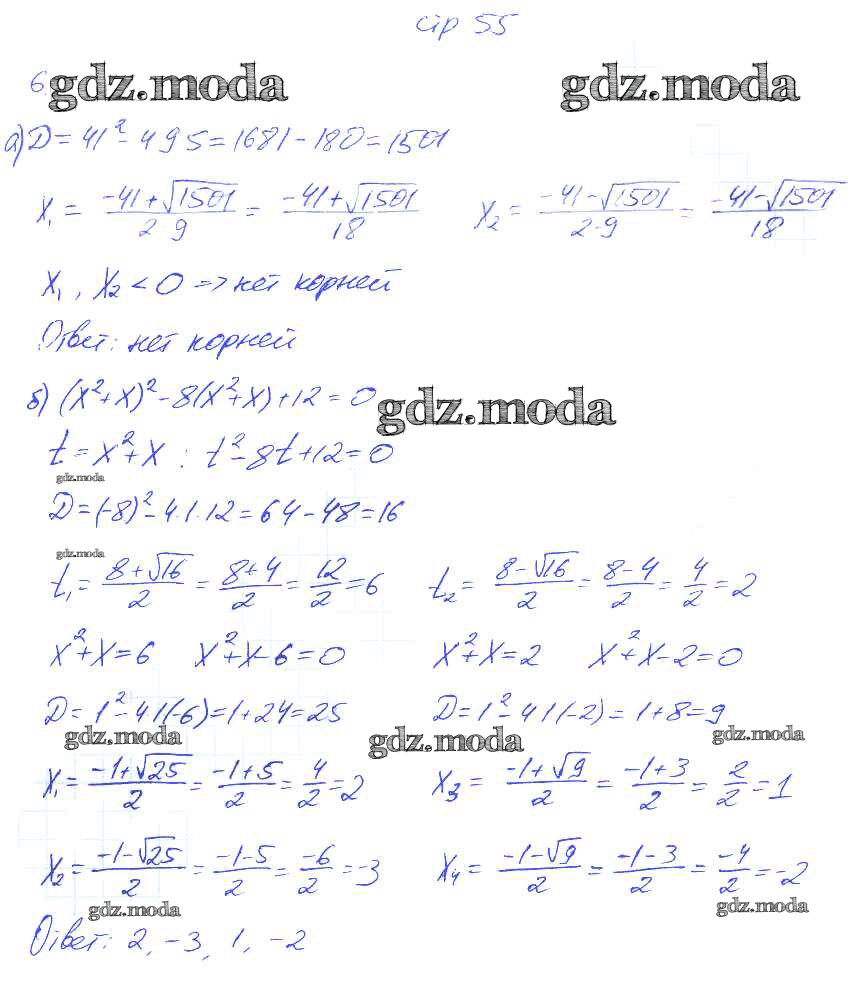 стр 55
6.
gdz.moda gdz.moda
а) D = 41² - 4 9 5 = 1681 - 180 = 1501
x₁ = (-41+√1501)/(2·9) = (-41+√1501)/18 x₂ = (-41-√1501)/(2·9) = (-41-√1501)/18
x₁, x₂ < 0 => нет корней
Ответ: нет корней
б) (x²+x)² - 8(x²+x) + 12 = 0
gdz.moda
t = x²+x : t² - 8t + 12 = 0
gdz.moda
D = (-8)² - 4·1·12 = 64 - 48 = 16
gdz.moda
t₁ = (8+√16)/2 = (8+4)/2 = 12/2 = 6 t₂ = (8-√16)/2 = (8-4)/2 = 4/2 = 2
x²+x=6 x²+x-6=0 x²+x=2 x²+x-2=0
D = 1² - 4 1 (-6) = 1+24 = 25 D = 1² - 4 1 (-2) = 1+8 = 9
gdz.moda gdz.moda gdz.moda
x₁ = (-1+√25)/2 = (-1+5)/2 = 4/2 = 2 x₃ = (-1+√9)/2 = (-1+3)/2 = 2/2 = 1
x₂ = (-1-√25)/2 = (-1-5)/2 = -6/2 = -3 x₄ = (-1-√9)/2 = (-1-3)/2 = -4/2 = -2
gdz.moda gdz.moda
Ответ: 2, -3, 1, -2